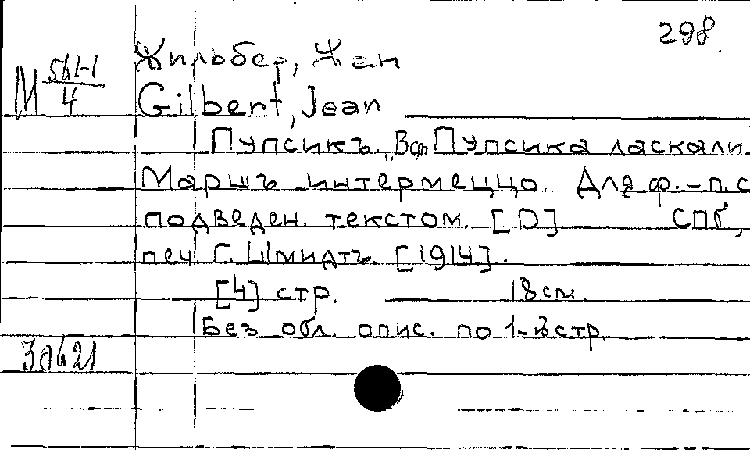 298.
Жильбер, Жан
М 561-1/4
Gilbert, Jean
Пупсикъ. „Всѣ Пупсика ласкали.
Маршъ интермеццо. Для ф.-п. с
подведен. текстом. [D] СПб,
печ. Г. Шмидтъ. [1914].
[4] стр. 18 см.
Без обл. опис. по 1-й стр.